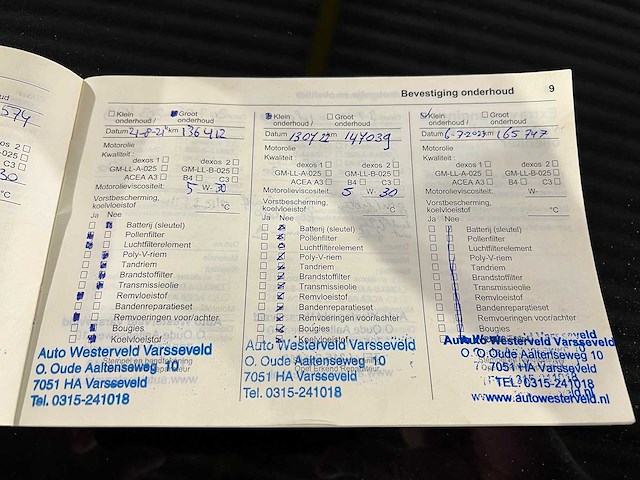 574
Bevestiging onderhoud 9
Klein onderhoud / Groot onderhoud
Datum 21-8-21 km 136412
Motorolie
Kwaliteit :
dexos 1 dexos 2
GM-LL-A-025 GM-LL-B-025
ACEA A3 B4 C3
Motorolieviscositeit: 5 W- 30
Vorstbescherming, koelvloeistof °C
Ja Nee
Batterij (sleutel)
Pollenfilter
Luchtfilterelement
Poly-V-riem
Tandriem
Brandstoffilter
Transmissieolie
Remvloeistof
Bandenreparatieset
Remvoeringen voor/achter
Bougies
Koelvloeistof
Auto Westerveld Varsseveld
O. Oude Aaltenseweg 10
7051 HA Varsseveld
Tel. 0315-241018
Klein onderhoud / Groot onderhoud
Datum 130722 km 147039
Motorolie
Kwaliteit :
dexos 1 dexos 2
GM-LL-A-025 GM-LL-B-025
ACEA A3 B4 C3
Motorolieviscositeit: 5 W- 30
Vorstbescherming, koelvloeistof °C
Ja Nee
Batterij (sleutel)
Pollenfilter
Luchtfilterelement
Poly-V-riem
Tandriem
Brandstoffilter
Transmissieolie
Remvloeistof
Bandenreparatieset
Remvoeringen voor/achter
Bougies
Koelvloeistof
Auto Westerveld Varsseveld
O. Oude Aaltenseweg 10
7051 HA Varsseveld
Tel. 0315-241018
Klein onderhoud / Groot onderhoud
Datum 6-7-2023 km 165747
Motorolie
Kwaliteit :
dexos 1 dexos 2
GM-LL-A-025 GM-LL-B-025
ACEA A3 B4 C3
Motorolieviscositeit: W-
Vorstbescherming, koelvloeistof °C
Ja Nee
Batterij (sleutel)
Pollenfilter
Luchtfilterelement
Poly-V-riem
Tandriem
Brandstoffilter
Transmissieolie
Remvloeistof
Bandenreparatieset
Remvoeringen voor/achter
Bougies
Auto Westerveld Varsseveld
O. Oude Aaltenseweg 10
7051 HA Varsseveld
TEL. 0315-241018
www.autowesterveld.nl